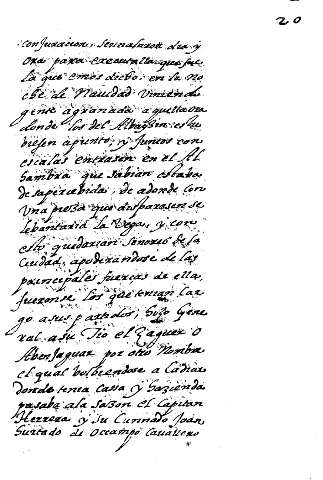 20
conjuracion, sennalaron dia y
ora para executalla que fue
la que emos dicho, en la no
che de Nauidad viniendo
gente a granada a quella ora
donde los del Albaysin estu
biesen apunto, y juntos con
escalas entrasen en el Al
hambra que sabian estaba
desapercebida, de adonde con
vna pieza que disparasen se
lebantaria la Vega, y con
esto quedarian sennores de la
Ciudad, apoderandose de las
principales fuercas de ella,
fueronse los que tenian car
go a sus partidos, Gene
ral a su Tio el Zaguer o
Abenjaguar por otro Nombre
el qual bolbiendose a Cadiar
donde tenia Cassa y Hazienda
pasaba ala sazon el Capitan
Herrera y su Cunnado Joan
Hurtado de Ocampo Cauallero